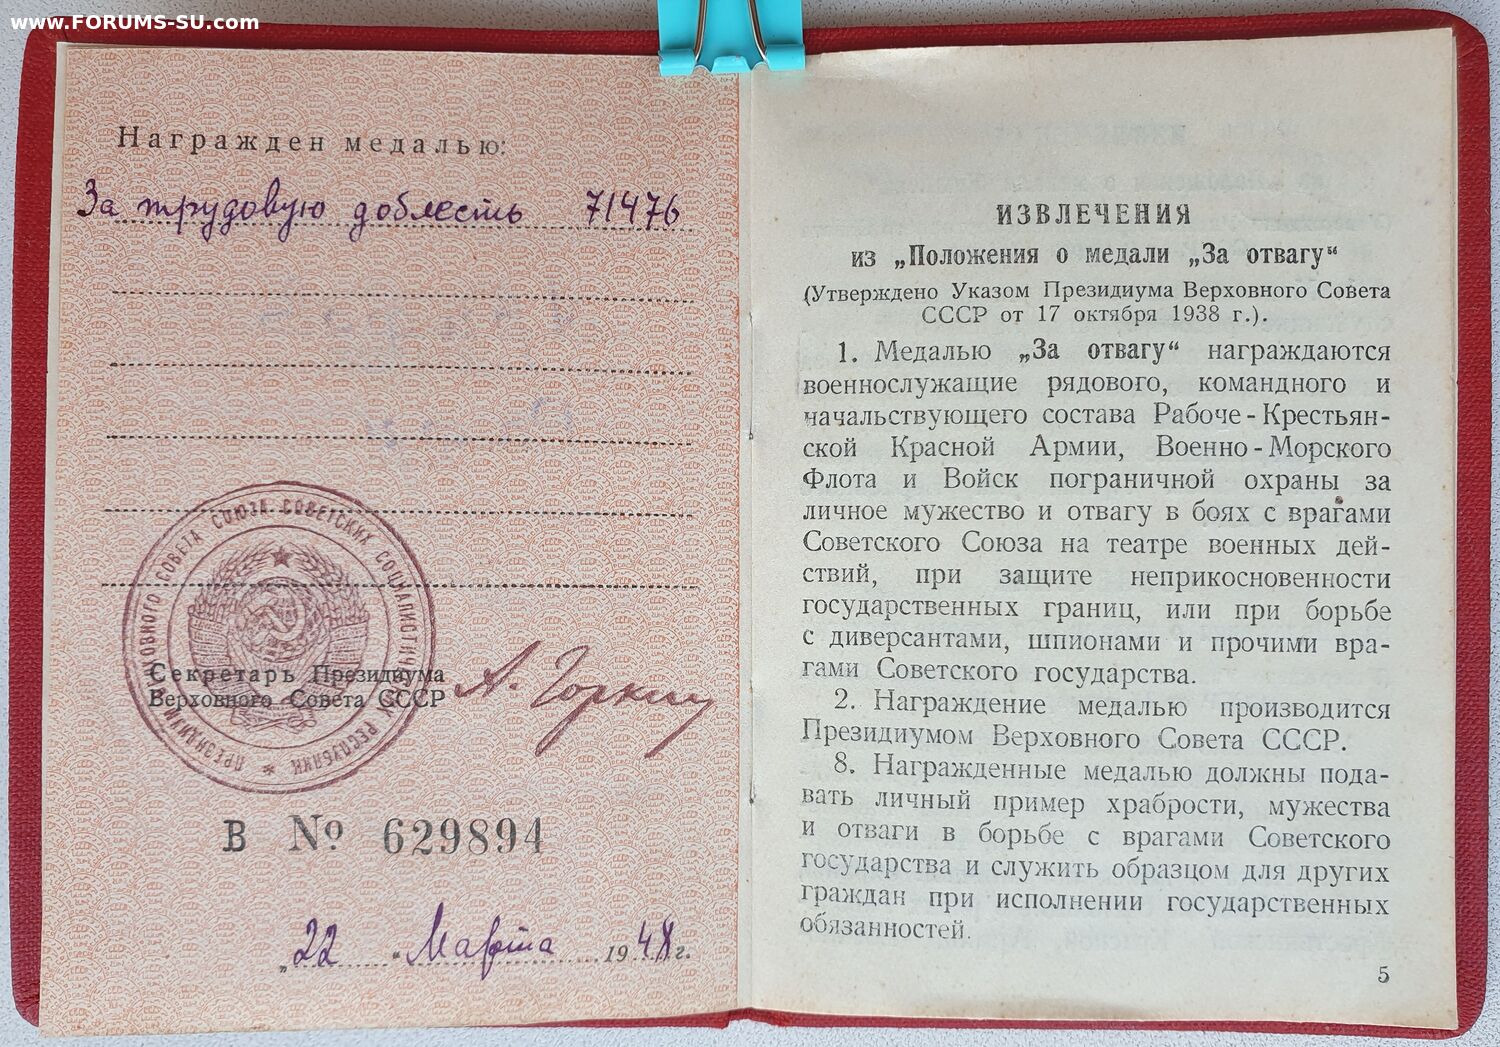 www.FORUMS-SU.com
Награжден медалью:
За трудовую доблесть 71476
ПРЕЗИДИУМ ВЕРХОВНОГО СОВЕТА СОЮЗА СОВЕТСКИХ СОЦИАЛИСТИЧЕСКИХ РЕСПУБЛИК *
Секретарь Президиума
Верховного Совета СССР А. Горкин
В № 629894
„22 “ Марта 1948 г.
ИЗВЛЕЧЕНИЯ
из „Положения о медали „За отвагу“
(Утверждено Указом Президиума Верховного Совета
СССР от 17 октября 1938 г.).
1. Медалью „За отвагу“ награждаются
военнослужащие рядового, командного и
начальствующего состава Рабоче-Крестьян-
ской Красной Армии, Военно-Морского
Флота и Войск пограничной охраны за
личное мужество и отвагу в боях с врагами
Советского Союза на театре военных дей-
ствий, при защите неприкосновенности
государственных границ, или при борьбе
с диверсантами, шпионами и прочими вра-
гами Советского государства.
2. Награждение медалью производится
Президиумом Верховного Совета СССР.
8. Награжденные медалью должны пода-
вать личный пример храбрости, мужества
и отваги в борьбе с врагами Советского
государства и служить образцом для других
граждан при исполнении государственных
обязанностей.
5